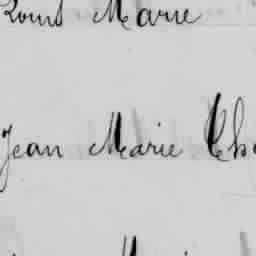 Louis Marie
Jean Marie Ch